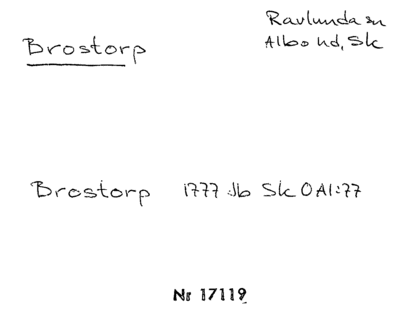 Brostorp
Ravlunda sn
Albo hd, Sk
Brostorp 1777 Jb Sk OAI:77
Nr 17119